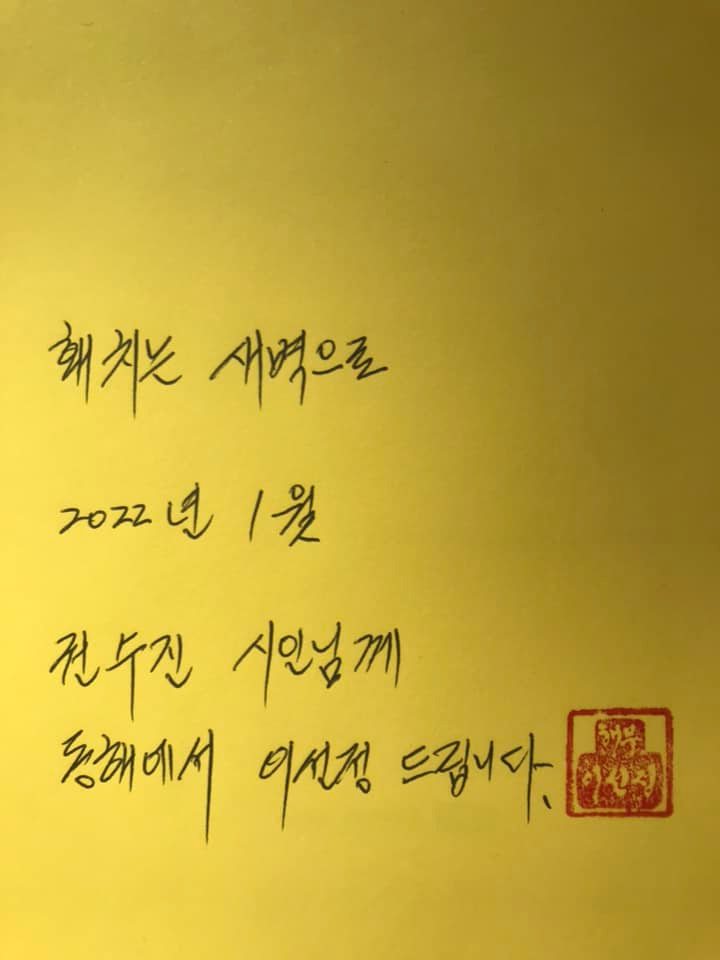 홰치는 새벽으로
2022년 1월
전수진 시인님께
동해에서 이선정 드립니다.
이선정